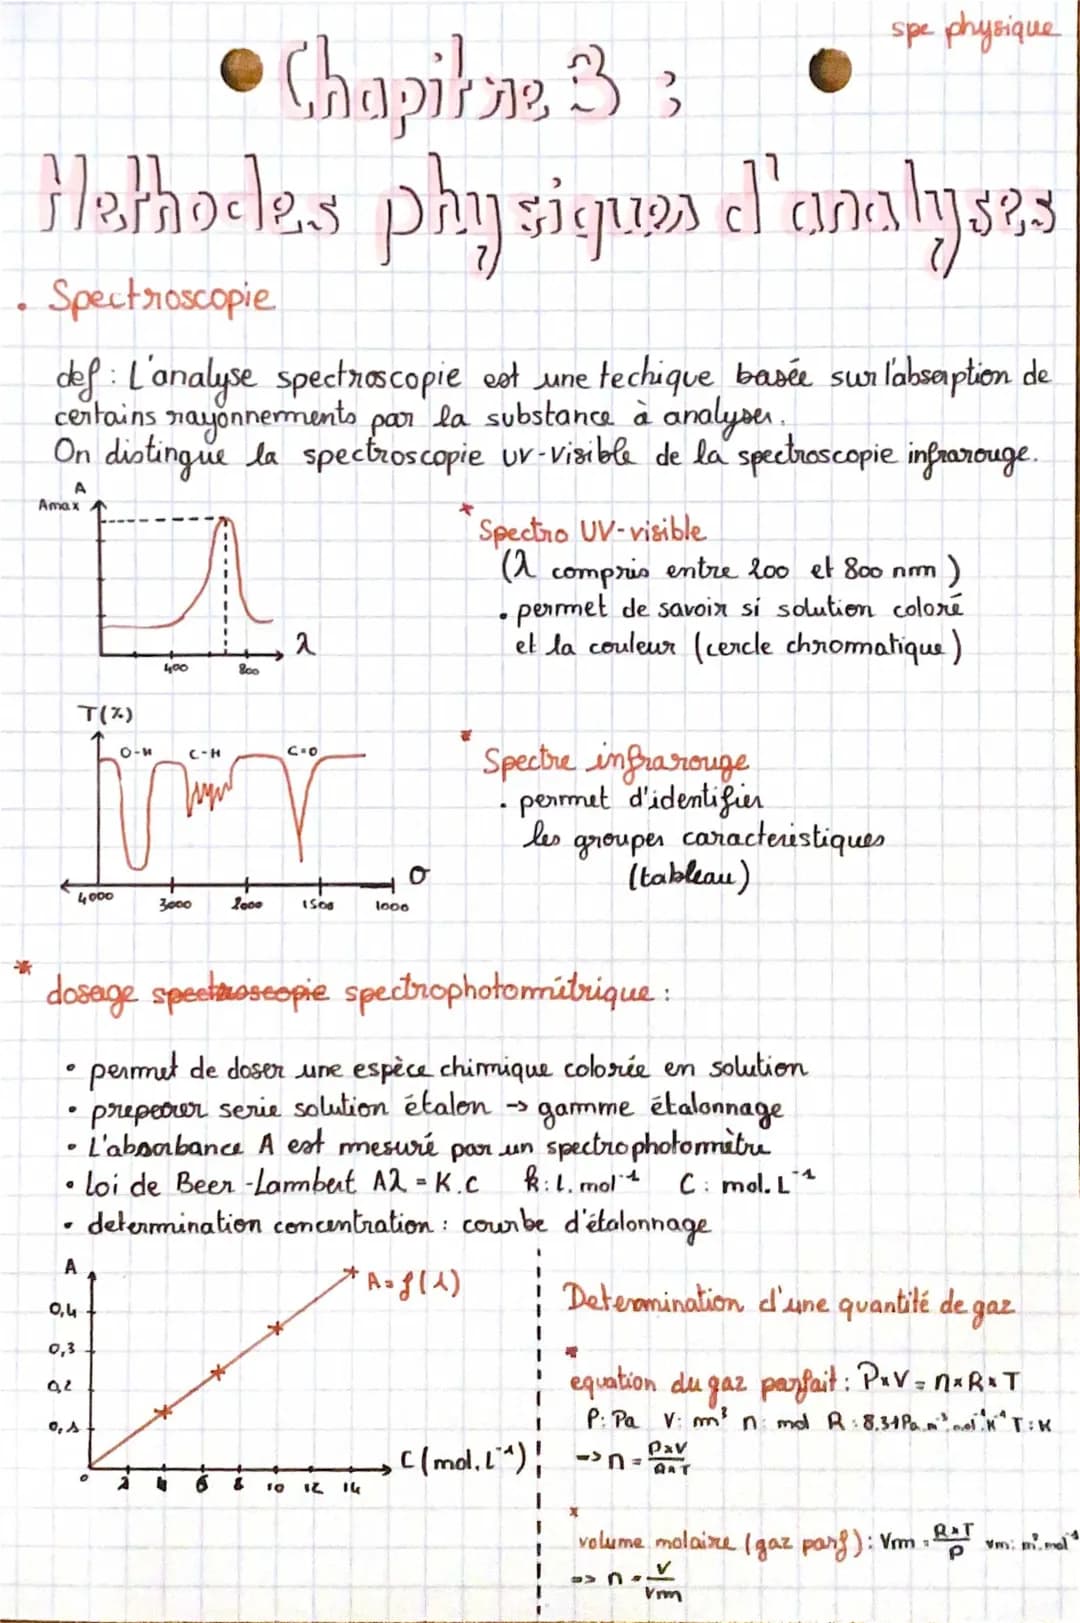 spe physique
Chapitre 3 :
Methodes physiques d'analyses
• Spectroscopie
def : L'analyse spectroscopie est une techique basée sur l'absorption de
certains rayonnements par la substance à analyser.
On distingue la spectroscopie UV-Visible de la spectroscopie infrarouge.
A
Amax
λ
400 800
* Spectro UV-visible
(λ compris entre 200 et 800 nm)
• permet de savoir si solution coloré
et la couleur (cercle chromatique)
T(%)
O-H C-H C=O
σ
4000 3000 2000 1500 1000
* Spectre infrarouge
• permet d'identifier
les groupes caracteristiques
(tableau)
* dosage spectroscopie spectrophotométrique :
• permet de doser une espèce chimique colorée en solution
• preparer serie solution étalon -> gamme étalonnage
• L'absorbance A est mesuré par un spectrophotomètre
• Loi de Beer-Lambert Aλ = K.C k: L.mol⁻¹ C: mol.L⁻¹
• determination concentration : courbe d'étalonnage
A
0,4
0,3
0,2
0,1
0 2 4 6 8 10 12 14
C (mol.L⁻¹)
A = f(λ)
Determination d'une quantité de gaz
* equation du gaz parfait : P×V = n×R×T
P: Pa V: m³ n: mol R: 8,31 Pa.m³.mol⁻¹.K⁻¹ T: K
=> n = P×V / R×T
* volume molaire (gaz parf) : Vm = R×T / P Vm: m³.mol⁻¹
=> n = V / Vm